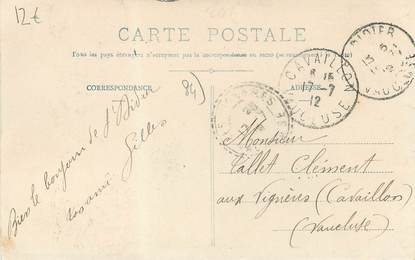 12€
CARTE POSTALE
Tous les pays étrangers n'acceptent pas la correspondance au recto
CORRESPONDANCE
ADRESSE
84)
CAVAILLON
VAUCLUSE
12
DIDIER
VAUCLUSE
Bien le bonjour de St Didier
ami Gilles
Monsieur
Tallet Clément
aux Vignères (Cavaillon)
(Vaucluse)